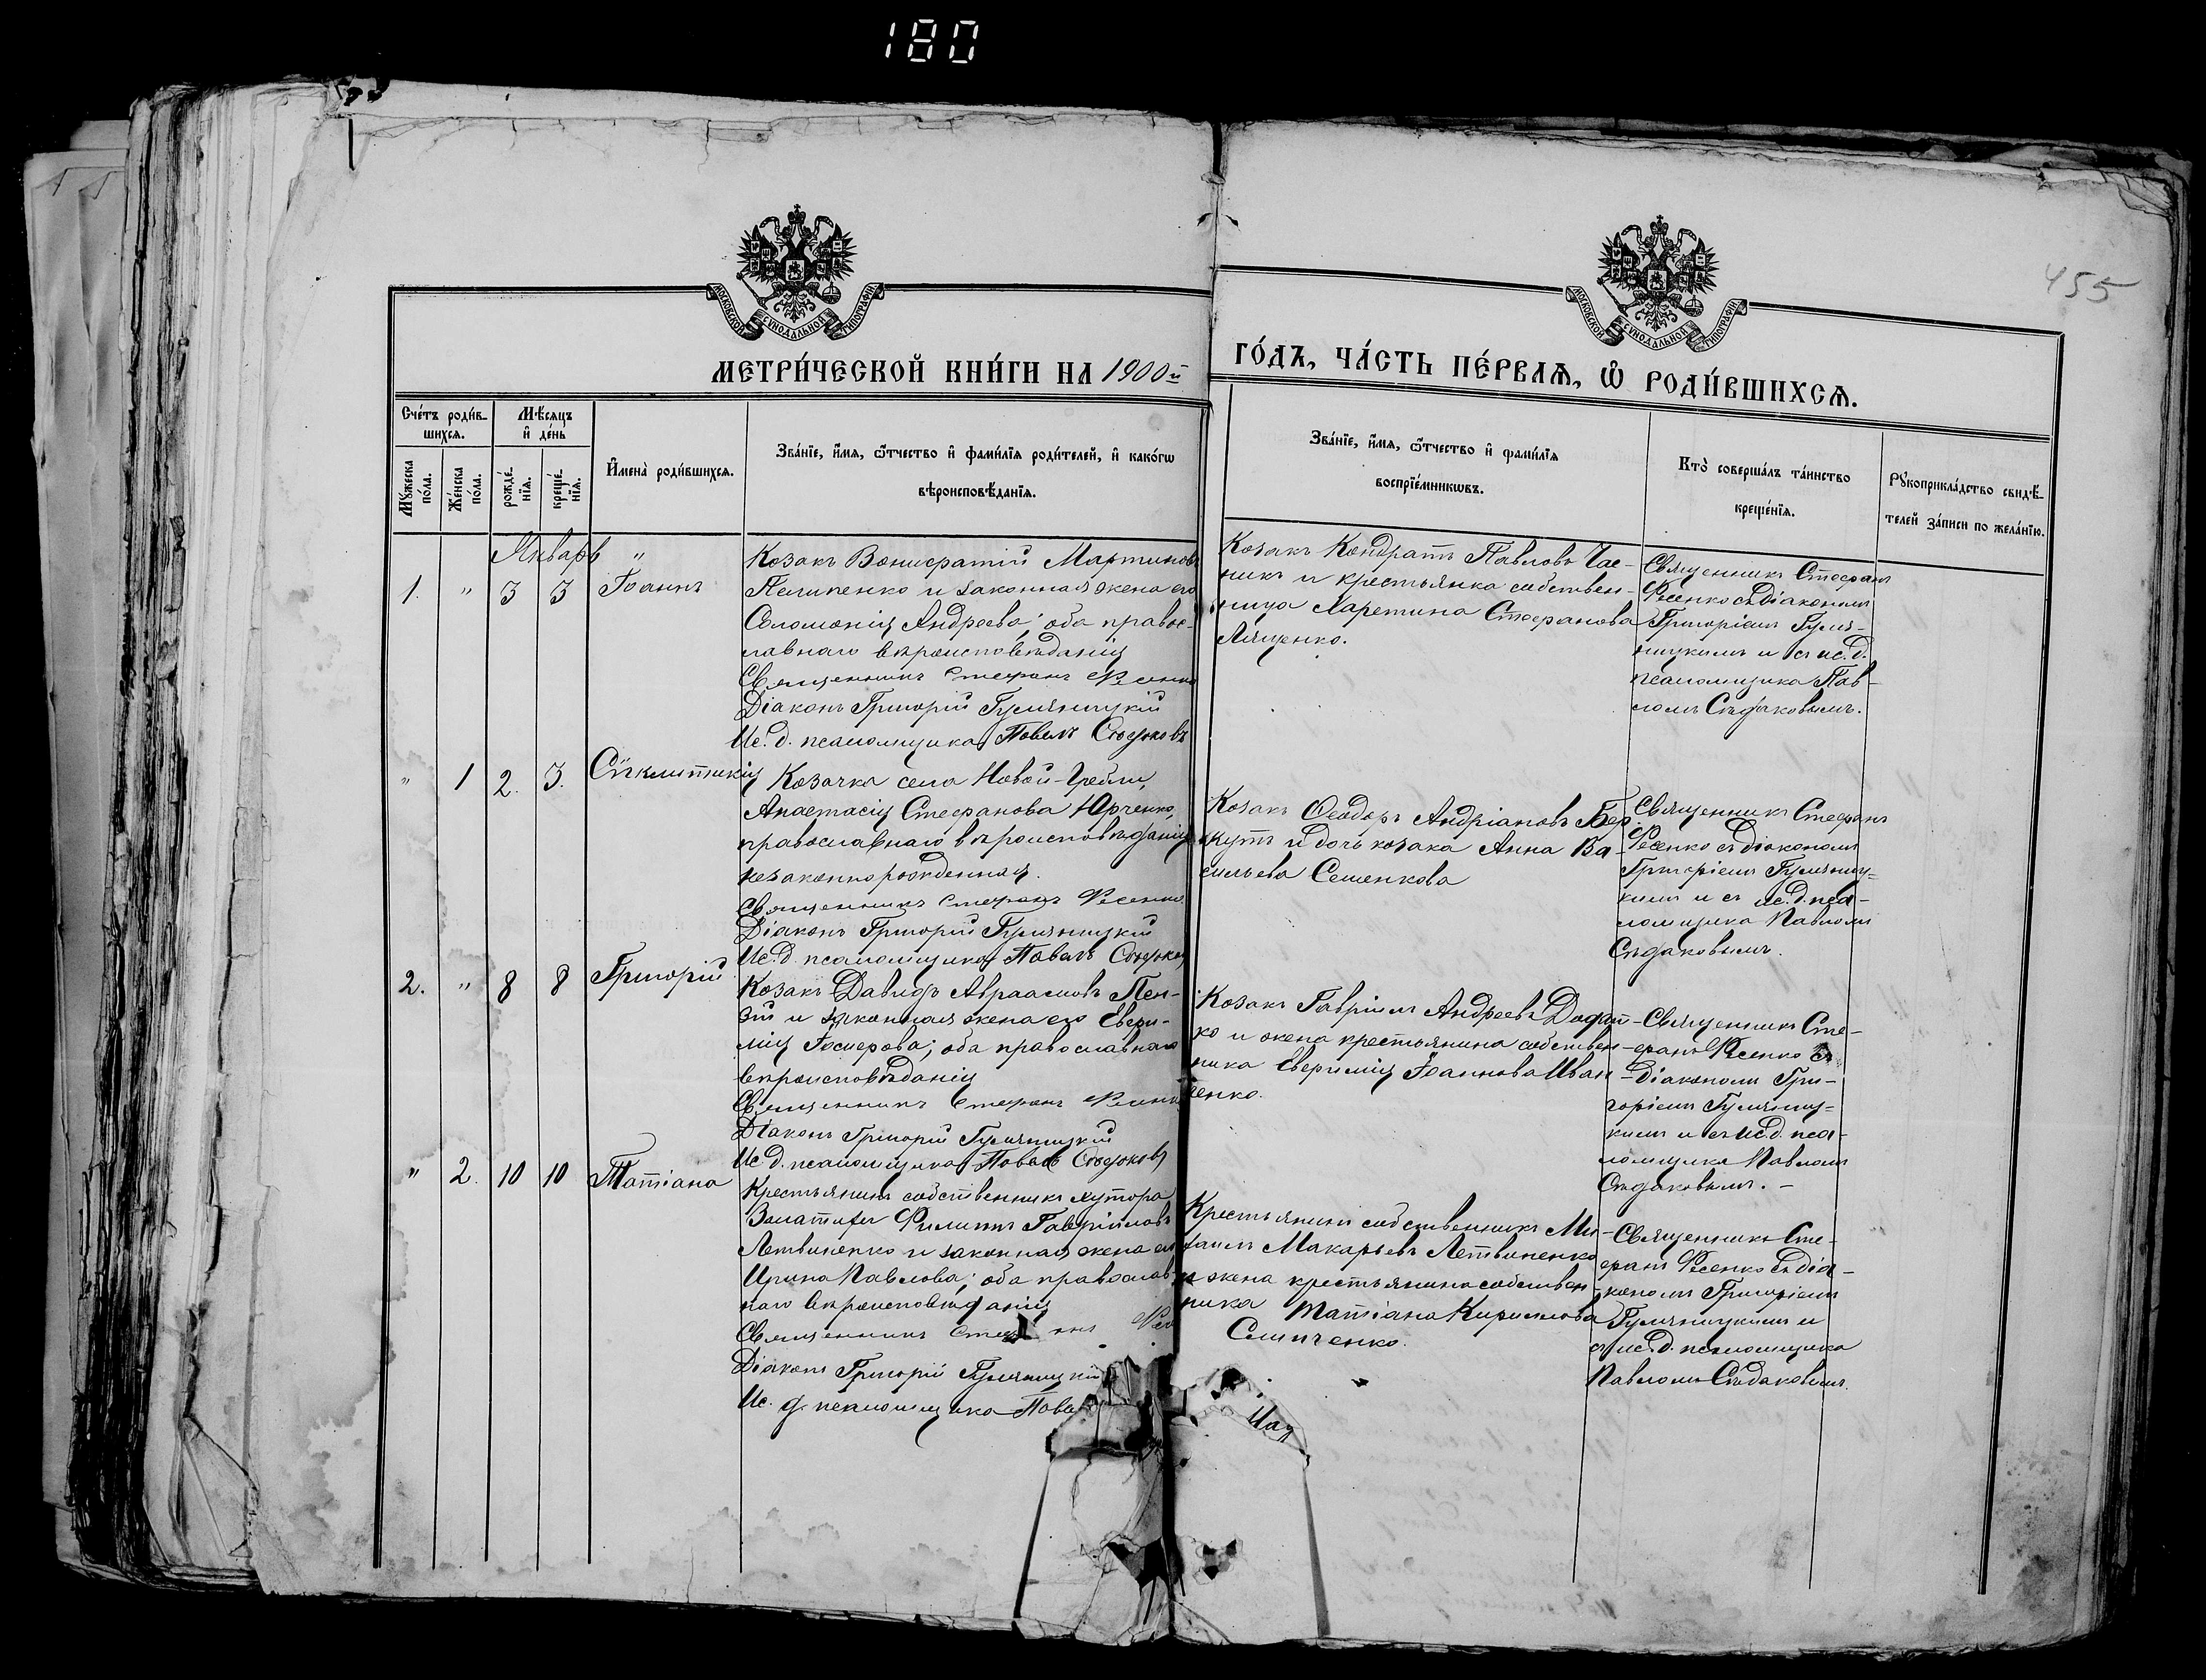 180
455
МОСКОВСКОЙ СУНОДАЛЬНОЙ ТИПОГРАФІИ
МОСКОВСКОЙ СУНОДАЛЬНОЙ ТИПОГРАФІИ
МЕТРИ́ЧЕСКОЙ КНИ́ГИ НА 1900й ГО́ДЪ, ЧА́СТЬ ПЕ́РВАѦ, Ѡ҆ РОДИ́ВШИХСѦ.
Сче́тъ роди́в-
шихсѧ.
Мꙋ́жеска по́ла.
Же́нска по́ла.
Мѣ́сѧцъ
и҆ де́нь
рожде́-нїѧ.
креще́-нїѧ.
И҆мена̀ роди́вшихсѧ.
Зва́нїе, и҆́мѧ, ѻ҆́тчество и҆ фами́лїѧ роди́телей, и҆ како́гѡ
вѣроисповѣ́данїѧ.
Зва́нїе, и҆́мѧ, ѻ҆́тчество и҆ фами́лїѧ
воспрїе́мникѡвъ.
Кто̀ соверша́лъ та́инство
креще́нїѧ.
Рꙋкоприкла́дство свидѣ́-
телей за́писи по жела́нїю.
Январь "
1. " 3 3 Іоаннъ
Козакъ Вонифатій Мартиновъ
Пелипенко и законная жена его
Соломонія Андреева; оба правос-
лавнаго вѣроисповѣданія
Священникъ Стефанъ Фесенко
Діаконъ Григорій Гуляницкій
Ис. д. псаломщика Павелъ Сѣдаковъ
Козакъ Кондратъ Павловъ Час-
никъ и крестьянка собствен-
ница Харетина Стефанова
Лященко.
Священникъ Стефанъ
Фесенко съ діакономъ
Григоріемъ Гуля-
ницкимъ и съ ис. д.
псаломщика Пав-
ломъ Сѣдаковымъ.
" 1 2. 3. Сѵнклитикія
Козачка села Новой-Гребли,
Анастасія Стефанова Юрченко,
православнаго вѣроисповѣданія
незаконнорожденная.
Священникъ Стефанъ Фесенко
Діаконъ Григорій Гуляницкій
Ис. д. псаломщика Павелъ Сѣдаковъ
Козакъ Ѳеодоръ Андріановъ Бер-
кутъ и дочь козака Анна Ва-
сильева Семенкова
Священникъ Стефанъ
Фесенко съ діакономъ
Григоріемъ Гуляниц-
кимъ и съ ис. д. пса-
ломщика Павломъ
Сѣдаковымъ.
2. " 8 8 Григорій
Козакъ Давидъ Авраамовъ Пен-
зій и законная жена его Евфи-
мія Іосифова; оба православнаго
вѣроисповѣданія
Священникъ Стефанъ Фесенко
Діаконъ Григорій Гуляницкій
Ис. д. псаломщика Павелъ Сѣдаковъ
Козакъ Гавріилъ Андреевъ
ко и жена крестьянина собствен-
ника Евфимія Іоаннова Иван-
енко.
Священникъ Сте-
фанъ Фесенко съ
діакономъ Гри-
горіемъ Гуляниц-
кимъ и съ ис. д. пса-
ломщика Павломъ
Сѣдаковымъ. -
" 2. 10 10 Татіана
Крестьянинъ собственникъ хутора
Филиппъ Гавріиловъ
Летвиненко и законная жена его
Ирина Павлова; оба православ-
наго вѣроисповѣданія
Священникъ Стефанъ Фес
Діаконъ Григорій Гуляницкій
Ис. д. псаломщика Павелъ
Крестьянинъ собственникъ Ми-
хаилъ Макарьевъ Летвиненко
и жена крестьянина собствен-
ника Татіана Кирилова
Слипченко.
Священникъ Сте-
фанъ Фесенко съ діа-
кономъ Григоріемъ
Гуляницкимъ и
съ ис. д. псаломщика
Павломъ Сѣдаковымъ.